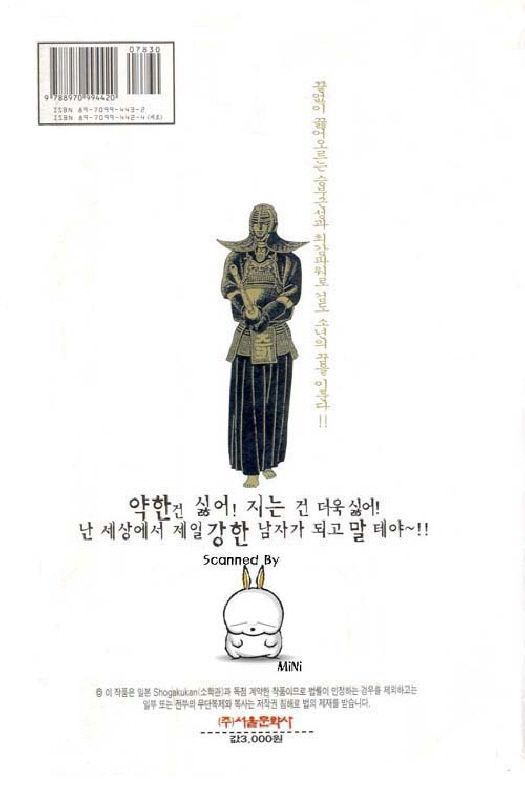 07830
9 788970 994420
ISBN 89-7099-443-2
ISBN 89-7099-442-4 (세트)
약한건 싫어! 지는 건 더욱 싫어!
난 세상에서 제일 강한 남자가 되고 말 테야~!!
Scanned By
MiNi
© 이 작품은 일본 Shogakukan(소학관)과 독점 계약한 작품이므로 법률이 인정하는 경우를 제외하고는
일부 또는 전부의 무단복제와 복사는 저작권 침해로 법의 제재를 받습니다.
(주)서울문화사
값3,000원